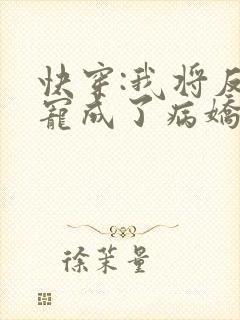 快穿:我将反
宠成了病娇
徐茉量